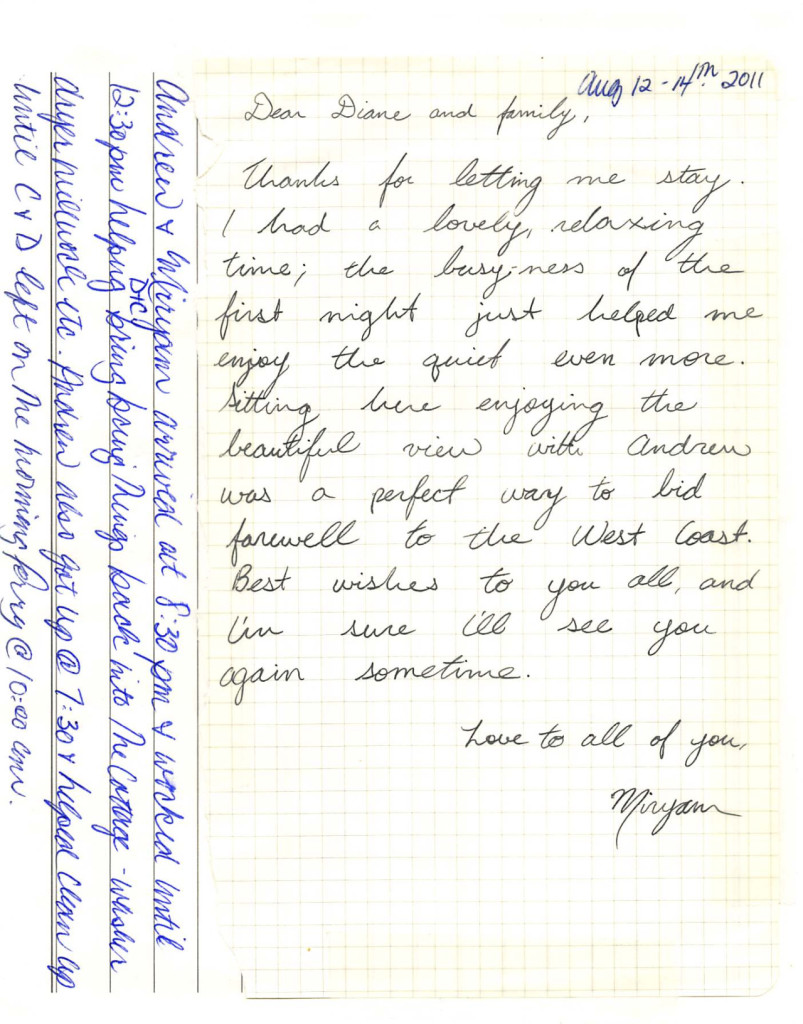 Aug 12 - 14th. 2011
Dear Diane and family,
Thanks for letting me stay.
I had a lovely, relaxing
time; the busy-ness of the
first night just helped me
enjoy the quiet even more.
Sitting here enjoying the
beautiful view with Andrew
was a perfect way to bid
farewell to the West Coast.
Best wishes to you all, and
I'm sure I'll see you
again sometime.
Love to all of you,
Miryam
Andrew & Miryam arrived at 8:30 pm & worked until
12:30 pm helping D+C bring bring things back into the Cottage - washer
dryer millwork etc. Andrew also got up @ 7:30 & helped clean up
until C & D left on the morning ferry @ 10:00 am.